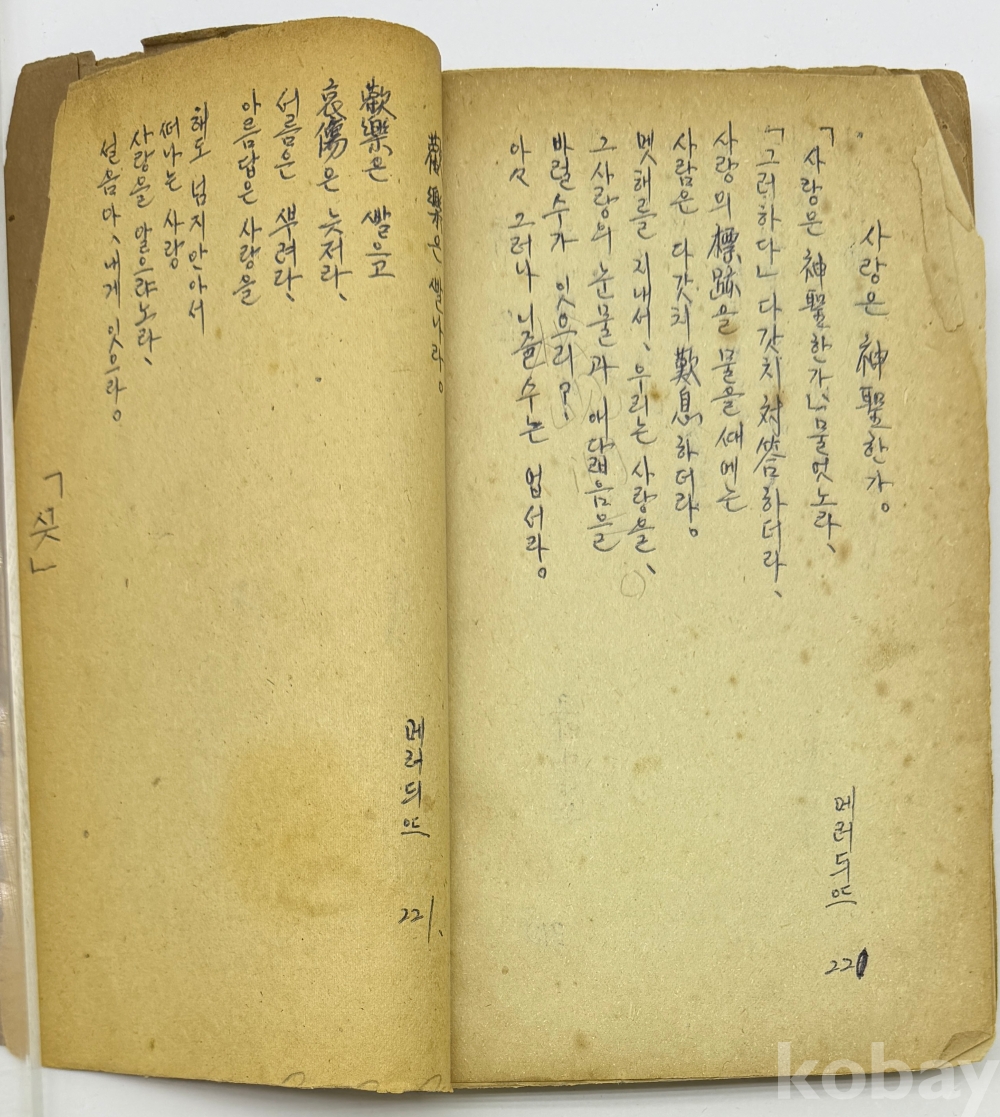 사랑은 神聖한가。
「사랑은 神聖한가」물엇노라、
「그러하다」다갓치 対答하더라、
사랑의 標跡을 물을때에는
사람은 다갓치 歎息하더라。
몃해를 지내서、우리는 사랑을、
그사랑의 눈물과 애닯음을
바릴수가 잇으리?、
아々 그러나 니즐수는 업서라。
메러듸뜨
221
歡樂은 빨나라。
歡樂은 빨으고
哀傷은 늣저라、
서름은 쑤려라、
아름답은 사랑을
해도 넘지안아서
떠나는 사랑
사랑을 알으랴노라、
설음아、내게 잇으라。
메러듸뜨
221、
「끗」
kobay